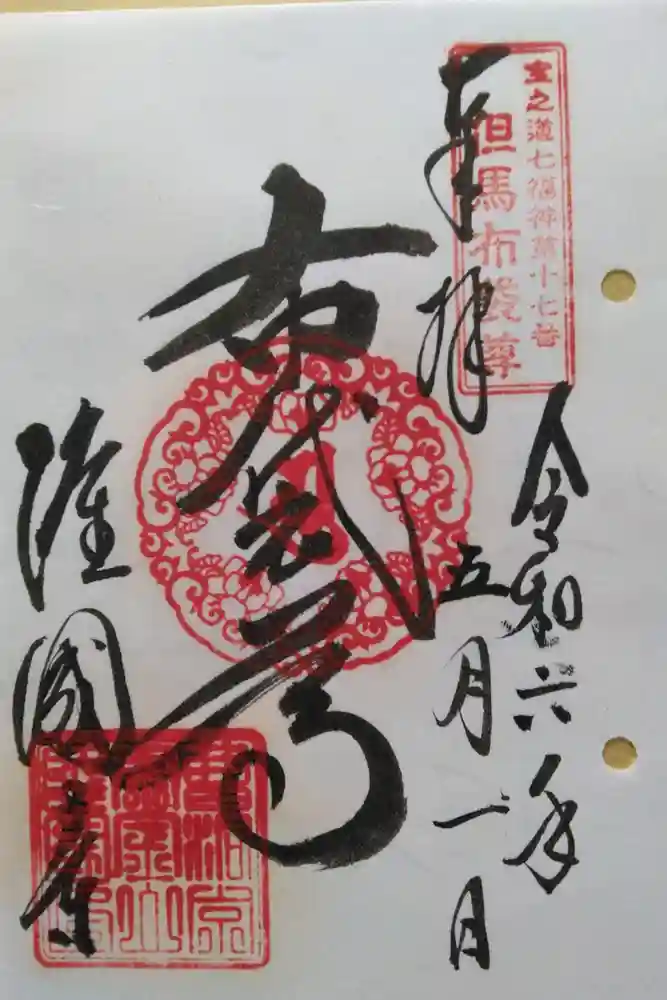 宝之道七福神第十七番
但馬布袋尊
奉拝
令和六年
五月一日
布袋尊
隆國寺